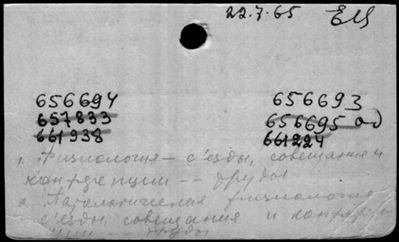 22.7.65 ЕЦ
656694 656693
657833 656695 ад
661938 661224
1. Физиология – съезды, совещания и
конференции -- труды
2. Патологическая физиология
съезды, совещания и конферен
ции -- труды